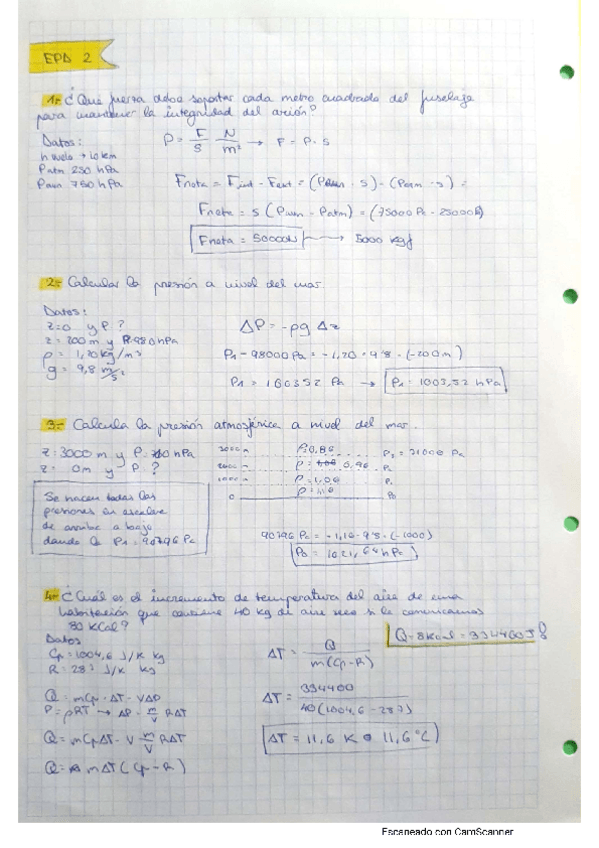 EPD 2
1.- ¿Qué fuerza debe soportar cada metro cuadrado del fuselaje
para mantener la integridad del avión?
Datos:
h vuelo → 10 km
Patm 250 hPa
Pavn 750 hPa
P = F/S N/m² → F = P · S
Fneta = Fint - Fext = (Pavn · S) - (Patm · S) =
Fneta = S (Pavn - Patm) = (75000 Pa - 25000 Pa)
Fneta = 50000N → 5000 Kgf
2.- Calcular la presión a nivel del mar.
Datos:
z=0 y P?
z = 200m y P. 980 hPa
ρ = 1,20 kg/m3
g = 9,8 m/s²
ΔP = -ρg Δz
P1 - 98000 Pa = -1,20 · 9'8 · (-200m)
P1 = 100352 Pa → P1 = 1003,52 hPa
3.- Calcula la presión atmosférica a nivel del mar.
z: 3000 m y P. 710 hPa
z: 0m y P?
Se hacen todas las
presiones en escalera
de arriba a bajo
dando la P1 = 90796 Pa
3000 m ρ: 0,86 P3 = 71000 Pa
2000 m 0,96 P2
1000 m ρ = 1,06 P1
0 ρ = 1,10 P0
90796 Pa = -1,10 · 9'8 · (-1000)
P0 = 1021,64 hPa
4.- ¿Cuál es el incremento de temperatura del aire de una
habitación que contiene 40 kg de aire seco si le comunicamos
80 KCal?
Datos
Cp = 1004,6 J/K kg
R = 287 J/K kg
Q = mCp · ΔT - VΔP
P = ρRT → ΔP = m/V RΔT
Q = mCpΔT - V m/V RΔT
Q = mΔT (Cp - R)
Q = 8Kcal = 334400J
ΔT = Q / m(Cp-R)
ΔT = 334400 / 40(1004,6 - 287)
ΔT = 11,6 K o 11,6 °C
Escaneado con CamScanner